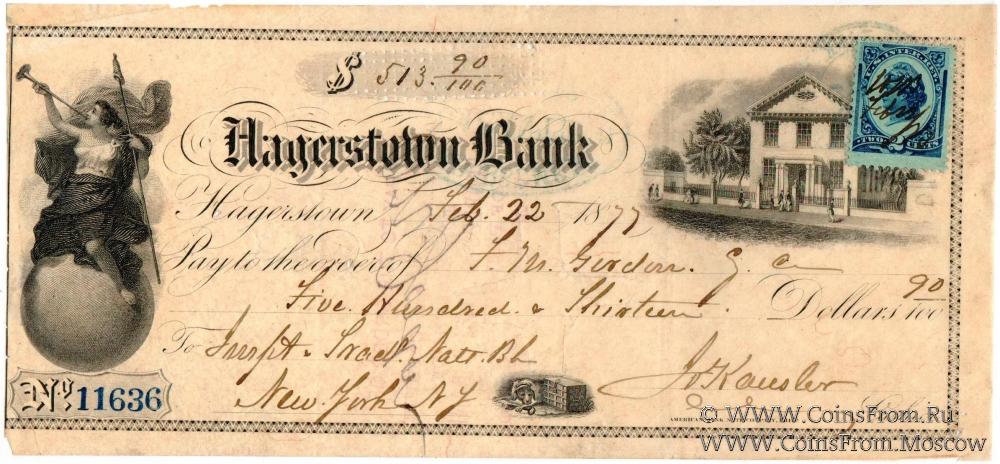 $ 513 90/100
U.S. INTER. REV.
TWO CENTS
Hagerstown Bank
Hagerstown Feb. 22 1877
Pay to the order of F. M. Gordon. C.
90
Five Hundred & Thirteen Dollars 100
To Impt. & Trad. Natl. Bk
New York NY
J. Kausler
11636
© WWW.CoinsFrom.Ru
WWW.CoinsFrom.Moscow